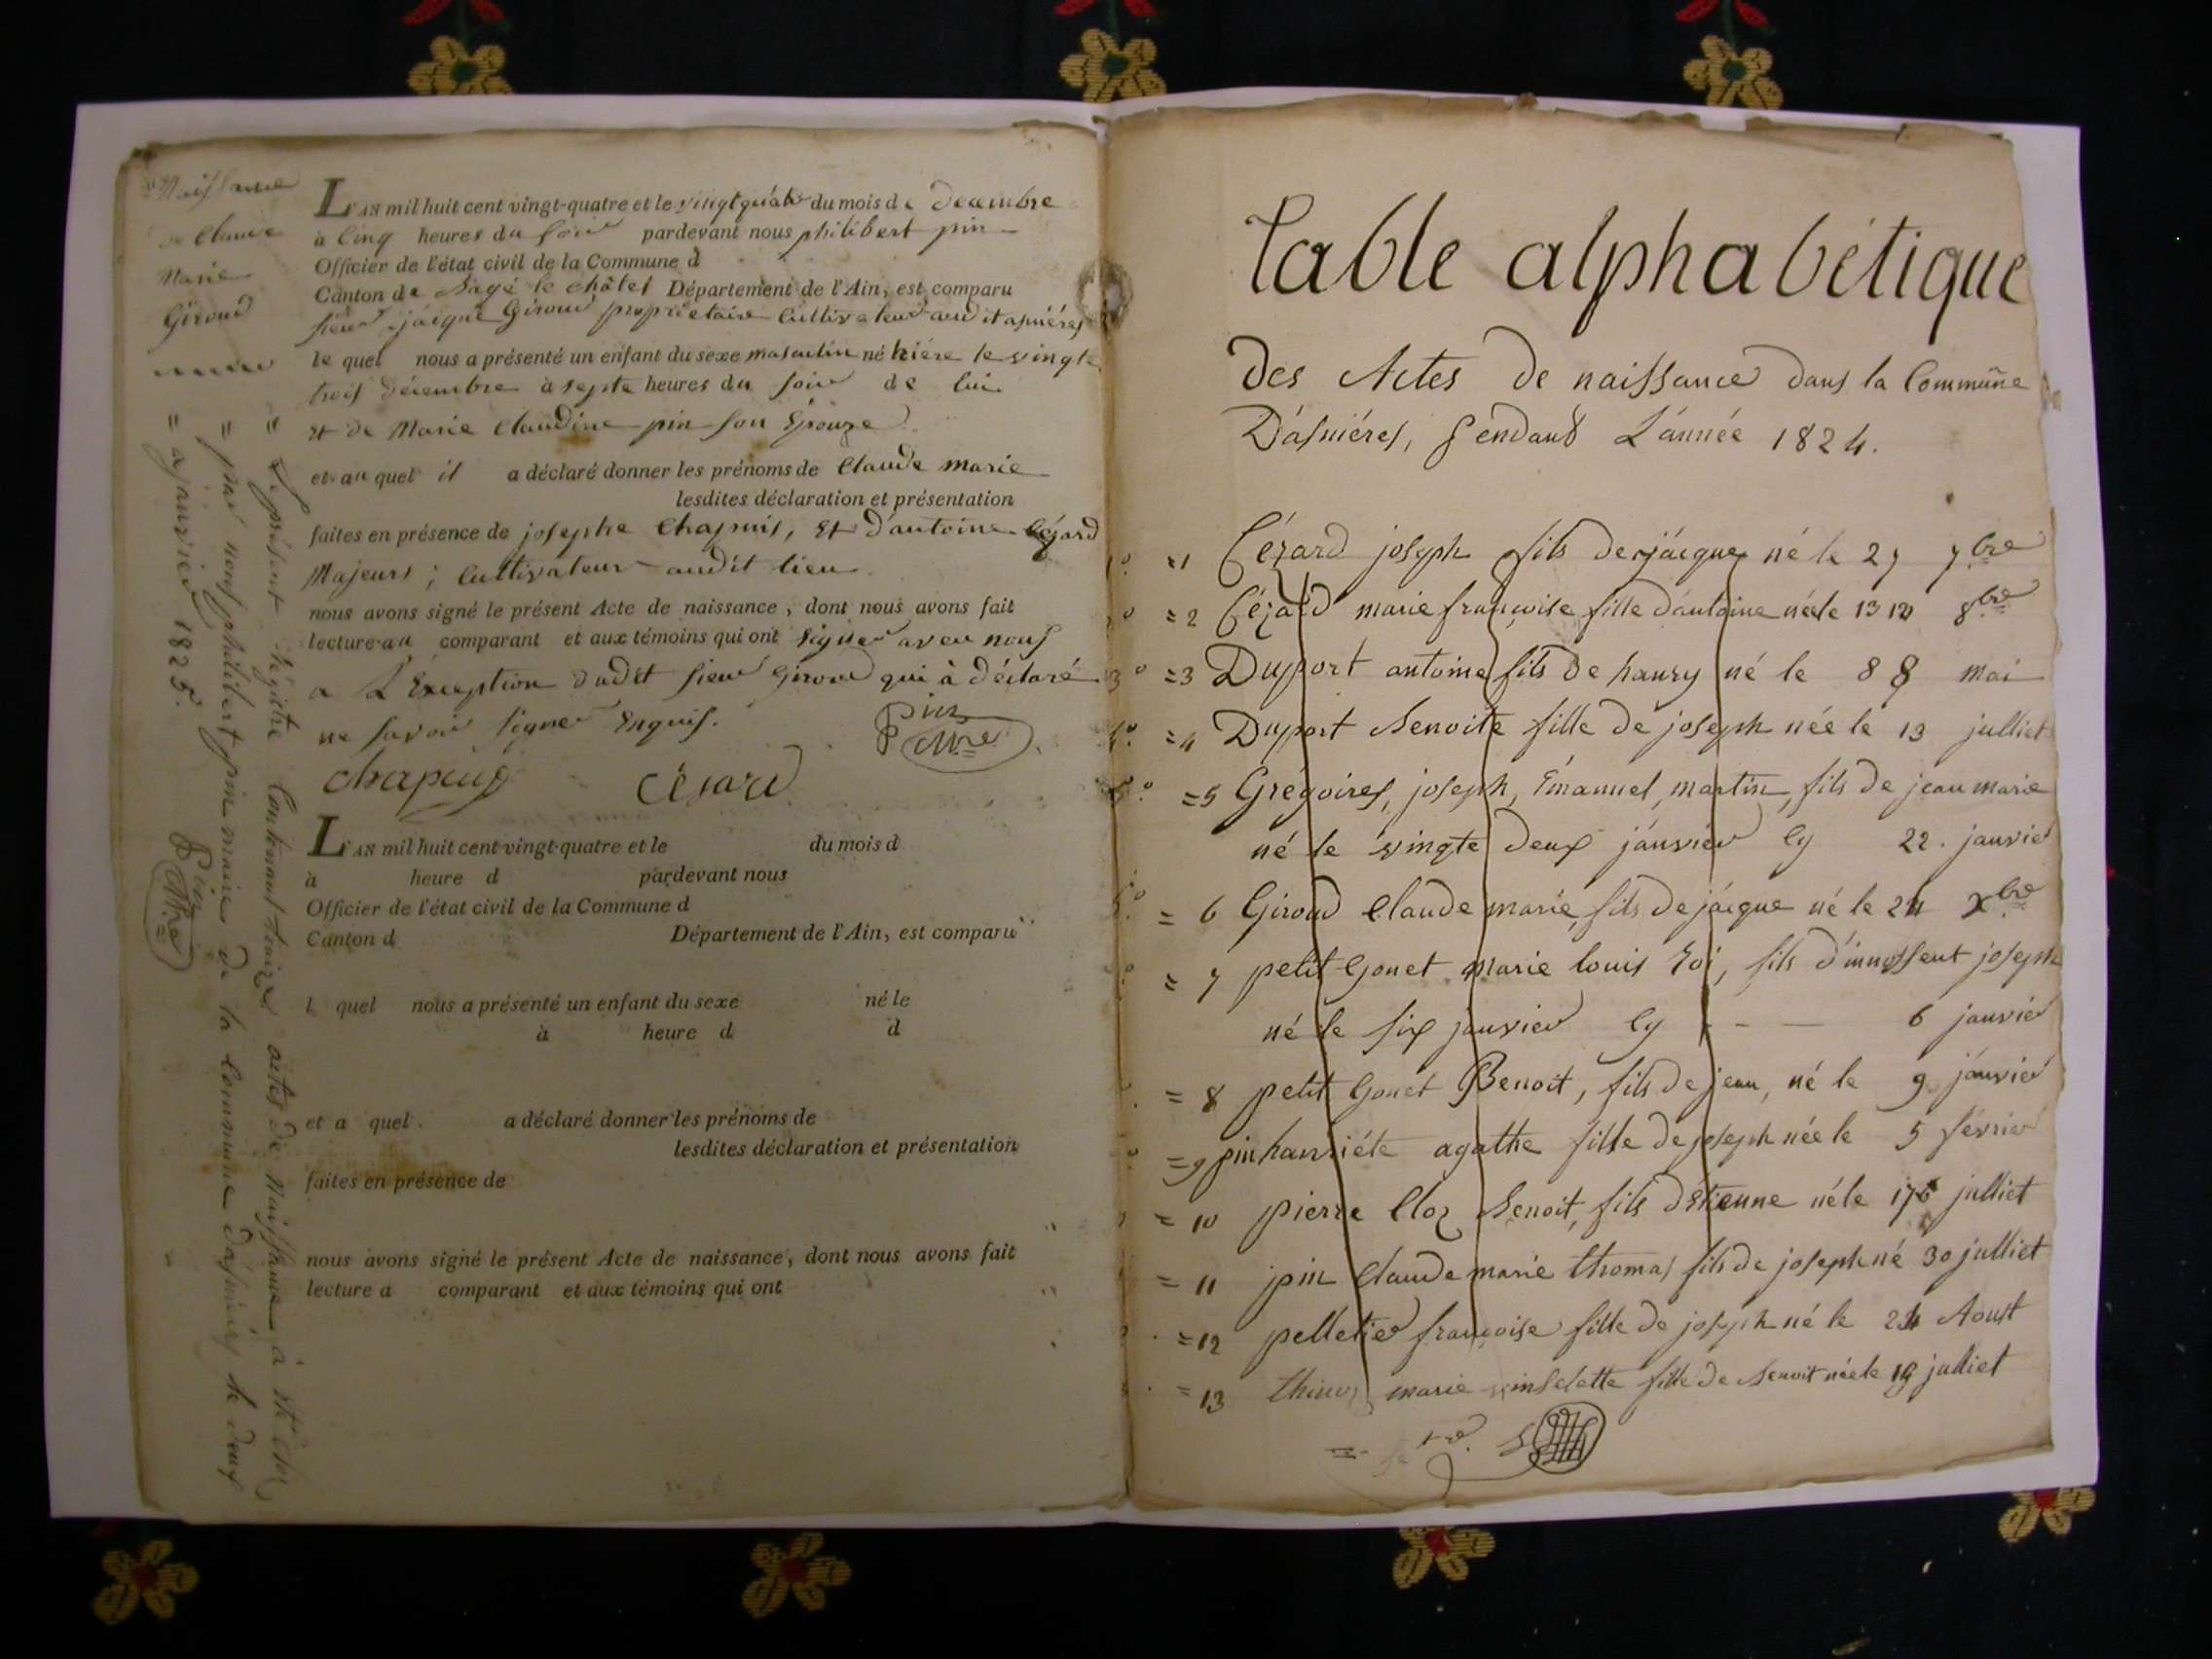 Naissance
de Claude
Marie
Giroud
L'AN mil huit cent vingt-quatre et le vingt quatre du mois de decembre
à Cinq heures du soir pardevant nous philibert pin
Officier de l'état civil de la Commune d
Canton de Bagé le châtel Département de l'Ain, est comparu
sieur jácque Giroud propriétaire Cultivateur audit asniéres
le quel nous a présenté un enfant du sexe masculin né hiére le vingte
trois décembre à septe heures du soir de lui
Et de Marie Claudine pin son Épouze
et au quel il a déclaré donner les prénoms de Claude marie
lesdites déclaration et présentation
faites en présence de josephe Chapuis, Et d'antoine Cézard
Majeurs ; Cultivateur audit lieu
nous avons signé le présent Acte de naissance, dont nous avons fait
lecture au comparant et aux témoins qui ont signer avec nous
a L'Exception dudit sieur Giroud qui à déclaré
ne savoir signer Enquis.
Pin
Mre
chapuis Césard
L'AN mil huit cent vingt-quatre et le du mois d
à heure d pardevant nous
Officier de l'état civil de la Commune d
Canton d Département de l'Ain, est comparu
l quel nous a présenté un enfant du sexe né le
à heure d d
et a quel a déclaré donner les prénoms de
lesdites déclaration et présentation
faites en présence de
nous avons signé le présent Acte de naissance, dont nous avons fait
lecture a comparant et aux témoins qui ont
= Le présent régistre Contenant traize actes de Naissance à été Clos
= par nous philibert pin maire de la Commune d'asniéres le deux
= janvier 1825.
Pin
Mre
Table alphabétique
Des Actes De naissance dans la Commune
D'ásniéres, pendant L'ánnée 1824.
=1 Cézard joseph fils de jácque né le 27 7bre
=2 Cézard marie françoise fille d'antoine née le 13 8bre
=3 Duport antoine fils de hanry né le 8 8 mai
=4 Duport Benoite fille de joseph née le 13 julliet
=5 Grégoires, joseph, Émanuel, martin, fils de jean marie
né le vingte deux jánvier Cy 22. janvier
= 6 Giroud Claude marie, fils de jácque né le 24 Xbre
= 7 petit Gonet marie louis Roi, fils d'innossent joseph
né le six janvier Cy - - — 6 janvier
= 8 petit Gonet Benoit, fils de jean, né le 9 jánvier
=9 pin hanriéte agathe fille de joseph née le 5 février
= 10 pierre Cloz Benoit, fils d'Etienne né le julliet
= 11 pin Claude marie thomas fils de joseph né 30 julliet
=12 pelletier françoise fille de joseph né le 24 Aoust
= 13 marie fille de Benoit née le 19 julliet